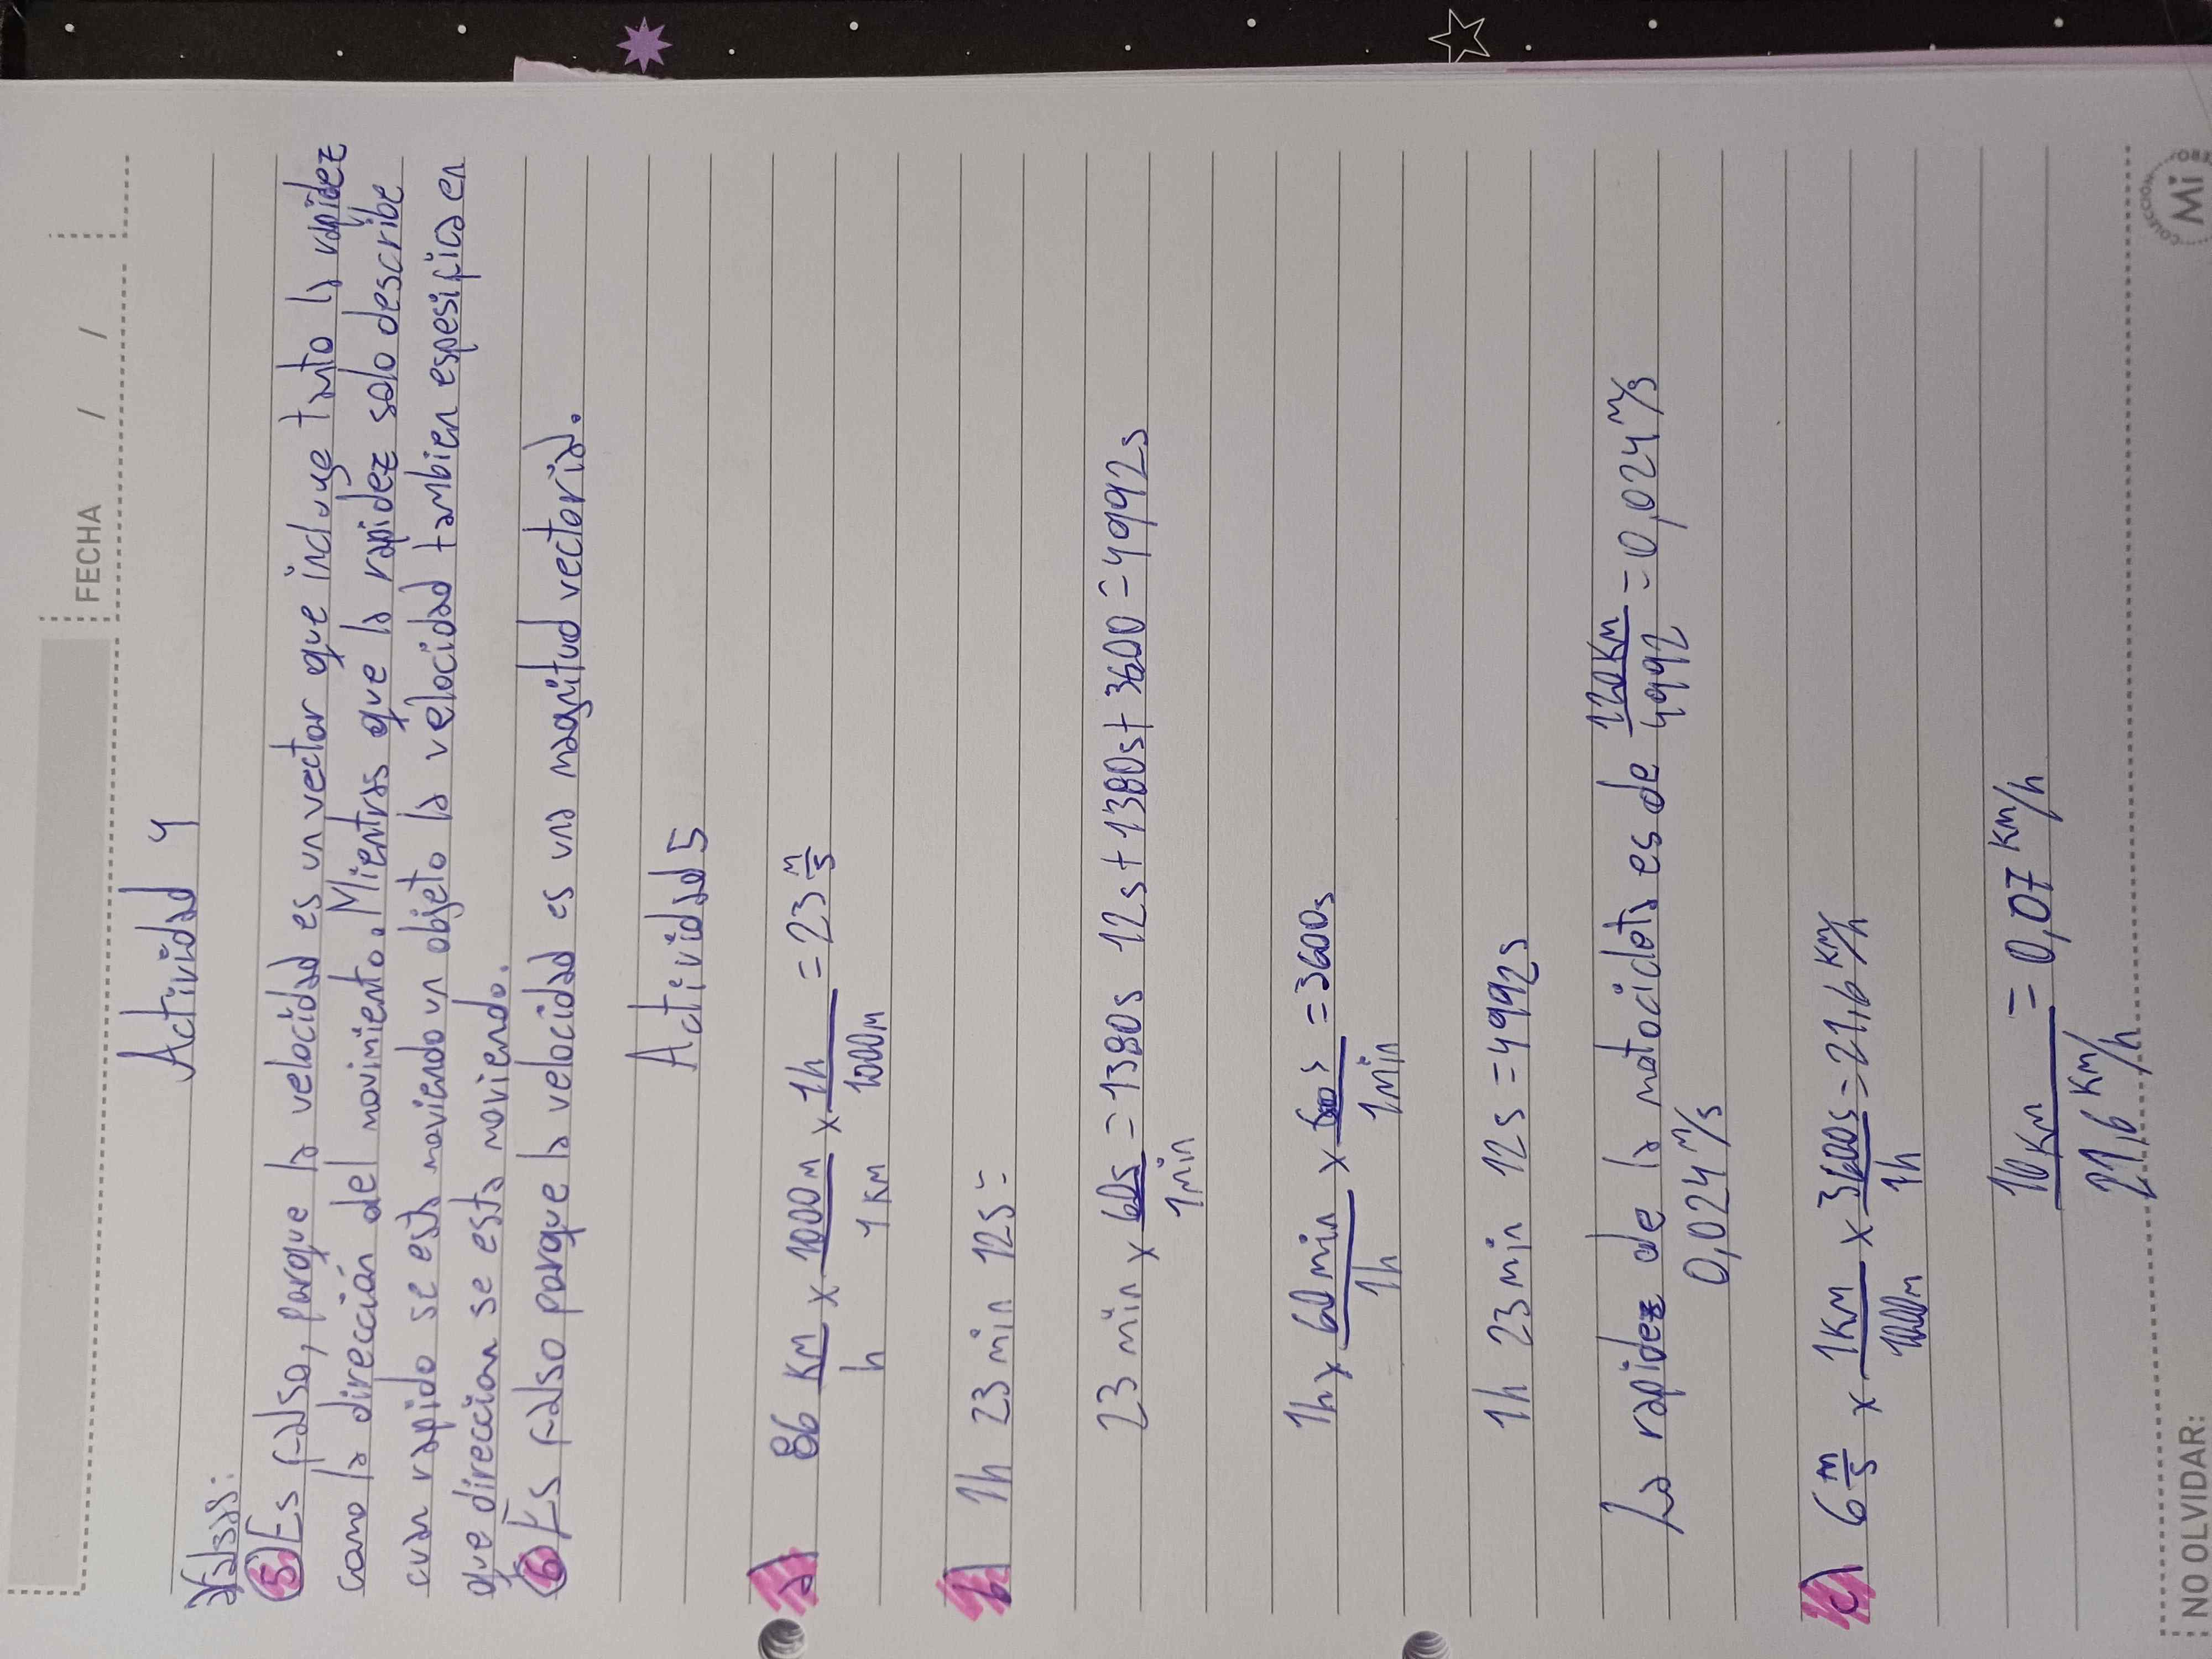 FECHA / /
Actividad 4
Falsas:
5) Es falso, porque la velocidad es un vector que incluye tanto la rapidez
como la dirección del movimiento. Mientras que la rapidez solo describe
cuan rapido se esta moviendo un objeto la velocidad tambien espesifica en
que direccion se esta moviendo.
6) Es falso porque la velocidad es una magnitud vectorial.
Actividad 5
a) 86 KM/h x 1000M/1KM x 1h/1000M = 23 m/s
b) 1h 23 min 12s =
23 min x 60s/1min = 1380s 12s + 1380s + 3600 = 4992s
1h x 60min/1h x 60s/1min = 3600s
1h 23 min 12s = 4992s
La rapidez de la motocicleta es de 120KM/4992 = 0,024 m/s
0,024 m/s
c) 6 m/s x 1KM/1000m x 3600s/1h = 21,6 KM/h
10KM/21,6 KM/h = 0,07 KM/h
NO OLVIDAR:
COLECCION
Mi